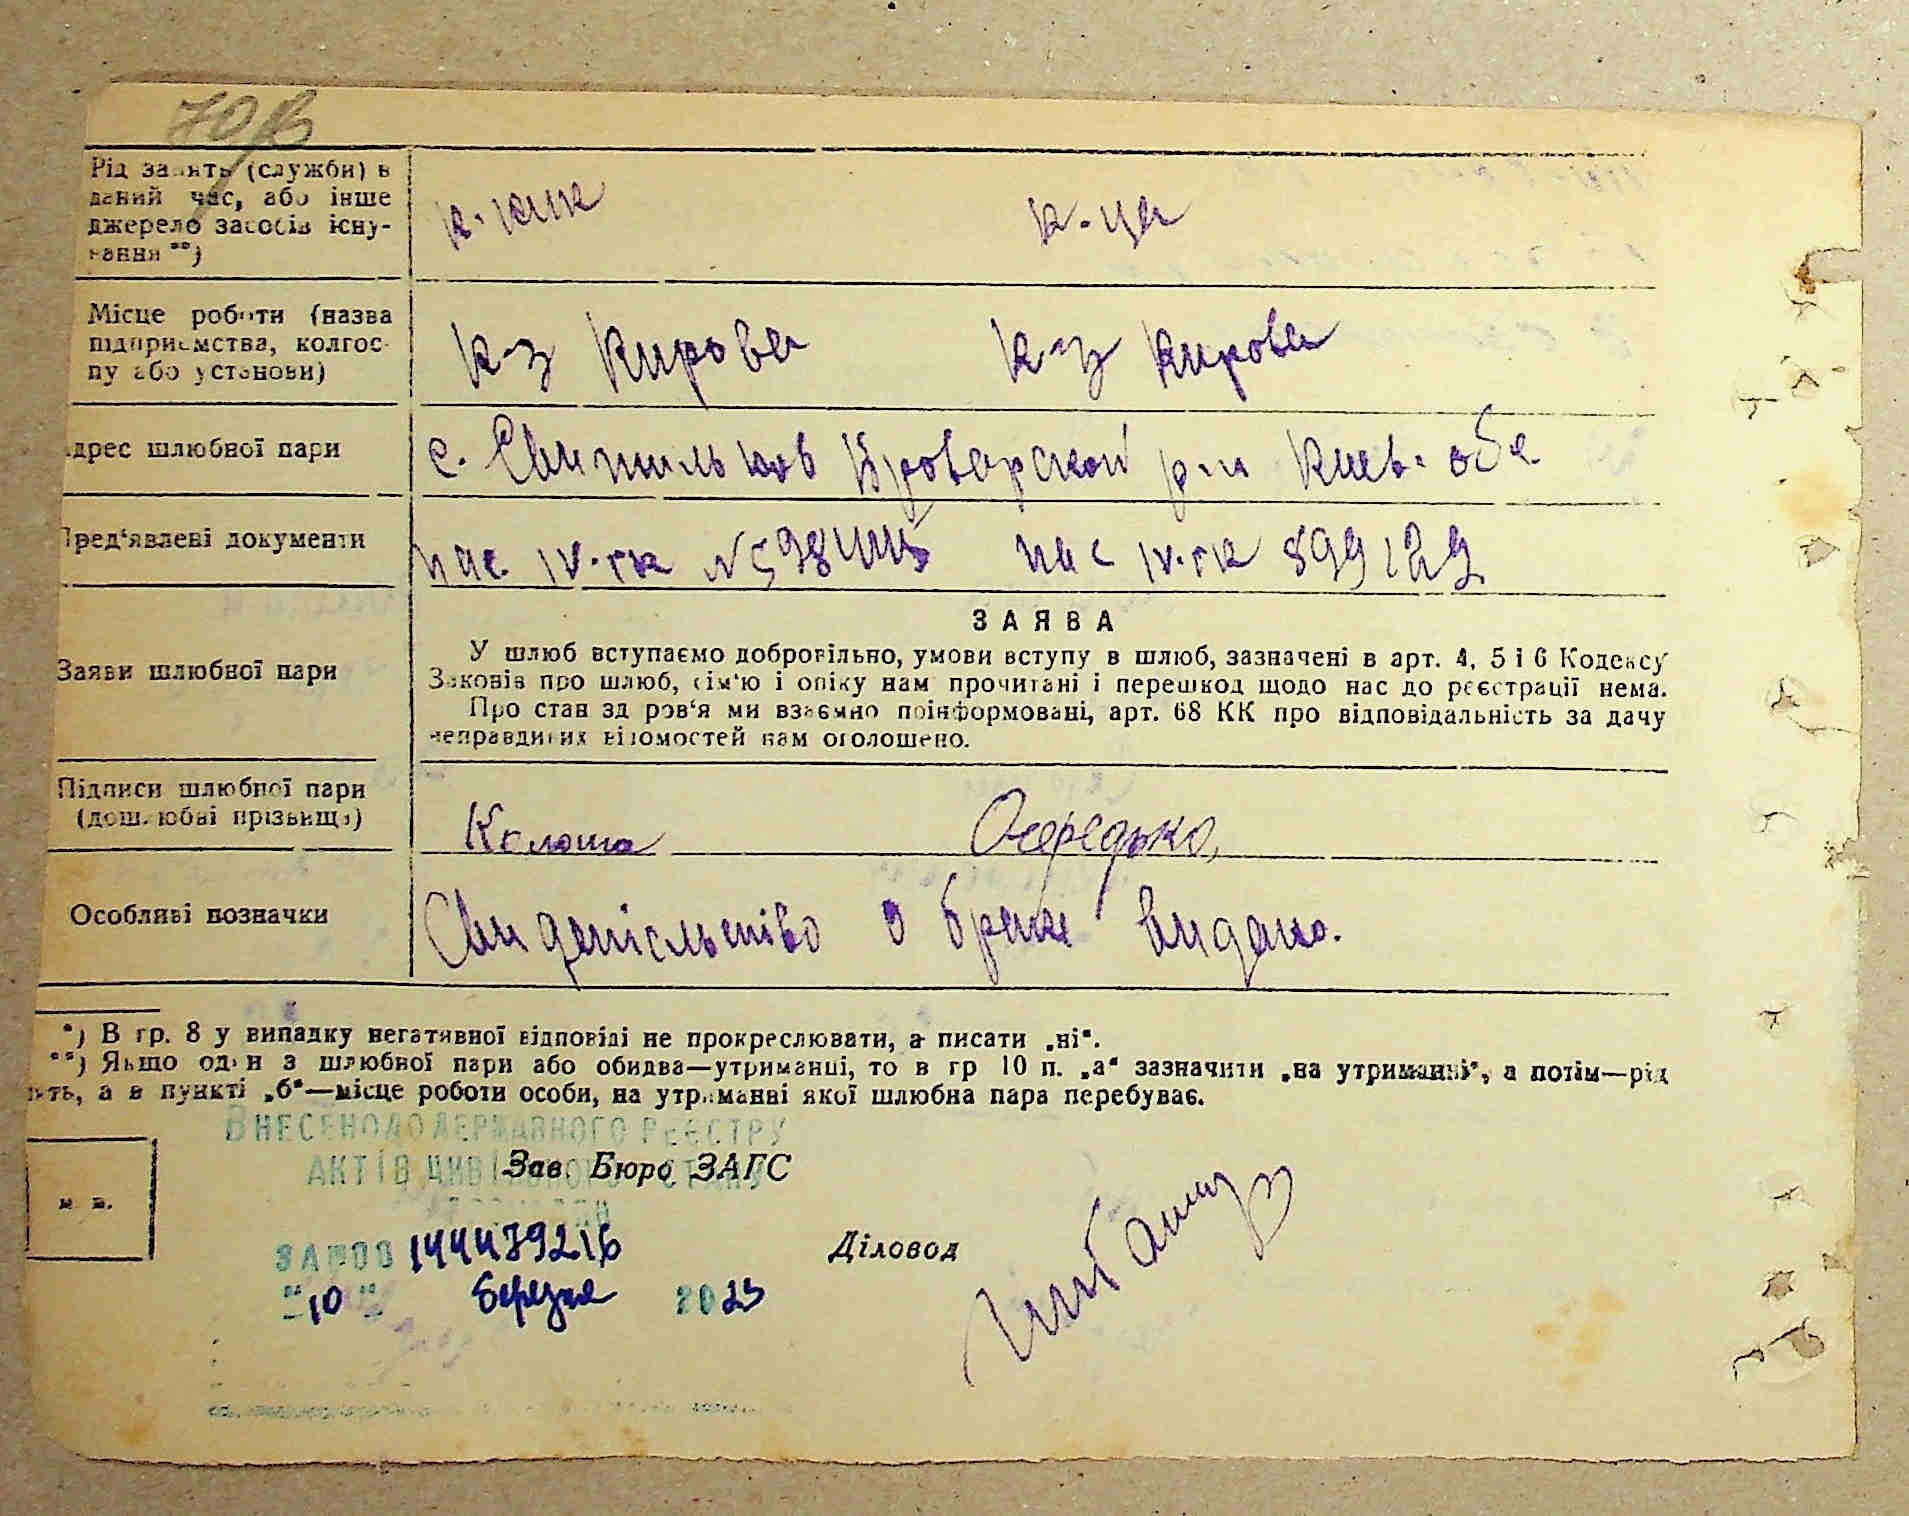 Рід занять (служби) в
даний час, або інше
джерело засобів існу-
вання **)
к-ник к-ця
Місце роботи (назва
підприємства, колгос-
пу або установи)
к-з Кирова к-з Кирова
Адрес шлюбної пари
с. Свитильнов Броварской р-н Киев. обл.
Пред'явлені документи
пас. IV-ГК № пас IV-ГК 899129
Заяви шлюбної пари
ЗАЯВА
У шлюб вступаємо добровільно, умови вступу в шлюб, зазначені в арт. 4, 5 і 6 Кодексу
Законів про шлюб, сім'ю і опіку нам прочитані і перешкод щодо нас до реєстрації нема.
Про стан здоров'я ми взаємно поінформовані, арт. 68 КК про відповідальність за дачу
неправдивих відомостей нам оголошено.
Підписи шлюбної пари
(дошлюбні прізвища)
Калоша Осередько,
Особливі позначки
Свидетільство о браке видано.
*) В гр. 8 у випадку негативної відповіді не прокреслювати, а писати „ні“.
**) Якщо один з шлюбної пари або обидва—утриманці, то в гр 10 п. „а“ зазначити „на утриманні“, а потім—рід
ять, а в пункті „б“—місце роботи особи, на утриманні якої шлюбна пара перебуває.
ВНЕСЕНО ДО ДЕРЖАВНОГО РЕЄСТРУ
АКТІВ ЦИВІЛЬНОГО СТАНУ
ГРОМАДЯН
Зав. Бюро ЗАГС
м. п.
ЗА №00 14447921б
Діловод
"10" березня 2023